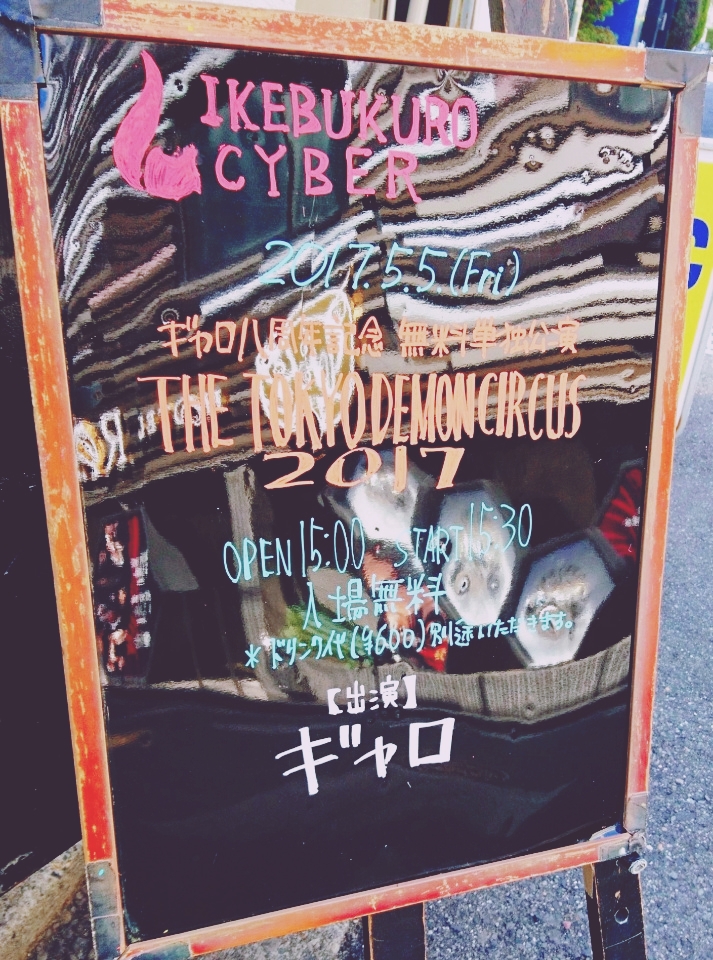 IKEBUKURO
CYBER
2017.5.5.(Fri)
ギャロ八周年記念 無料単独公演
THE TOKYO DEMON CIRCUS
2017
OPEN 15:00 START 15:30
入場無料
*ドリンク代(¥600.)別途いただきます。
【出演】
ギャロ